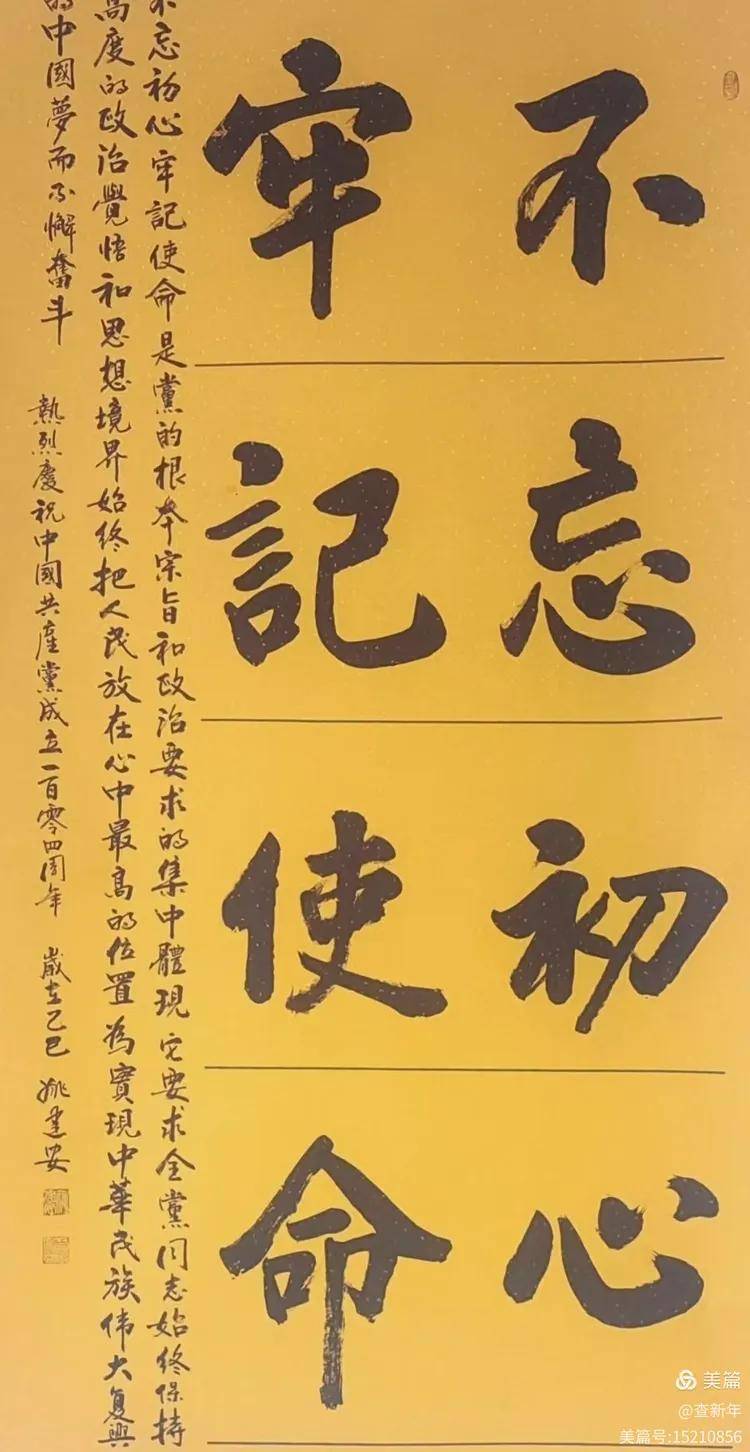 不忘初心
牢記使命
不忘初心牢記使命是黨的根本宗旨和政治要求的集中體現它要求全黨同志始終保持
高度的政治覺悟和思想境界始終把人民放在心中最高的位置為實現中華民族偉大復興
的中國夢而不懈奮斗
熱烈慶祝中國共產黨成立一百零四周年 歲在乙巳 姚建安
美篇
@查新年
美篇号:15210856